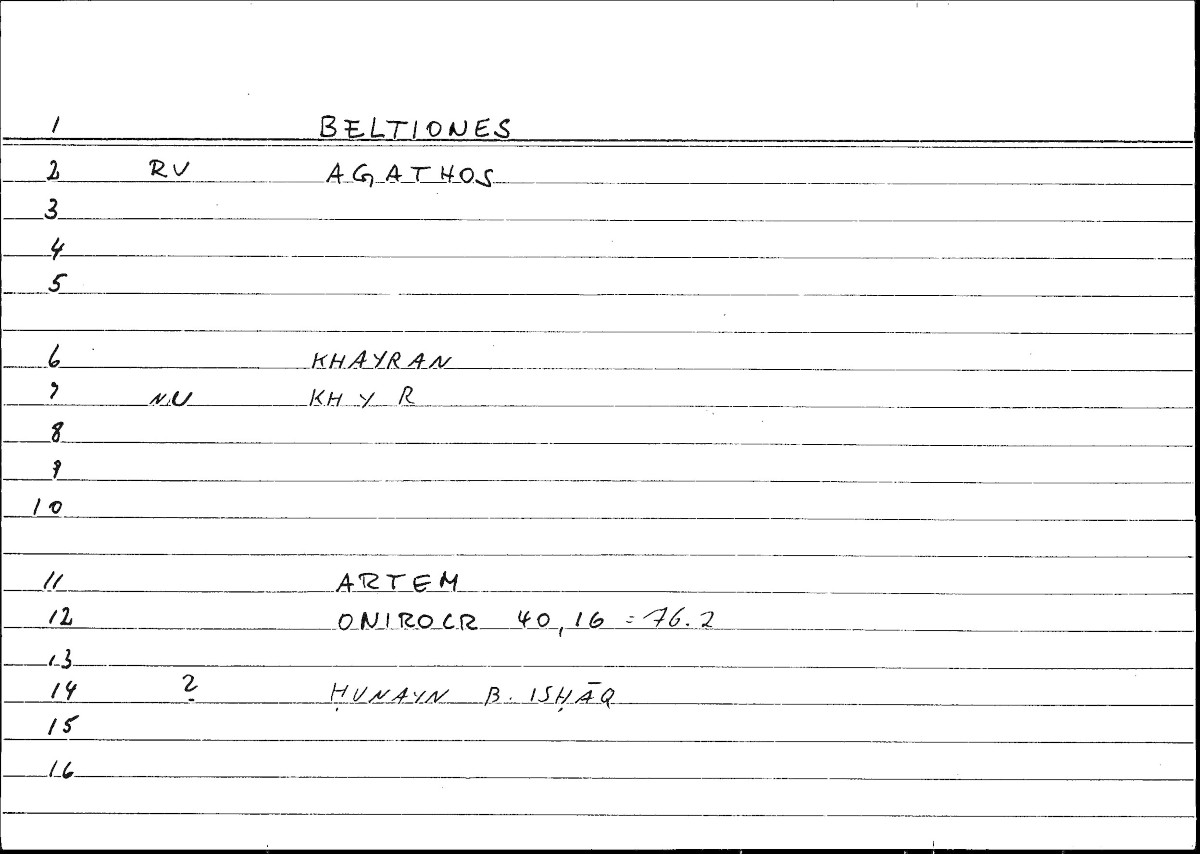 1 BELTIONES
2 RV AGATHOS
3
4
5
6 KHAYRAN
7 NU KH Y R
8
9
10
11 ARTEM
12 ONIROCR 40,16 = 76.2
13
14 2 ḤUNAYN B. ISḤĀQ
15
16